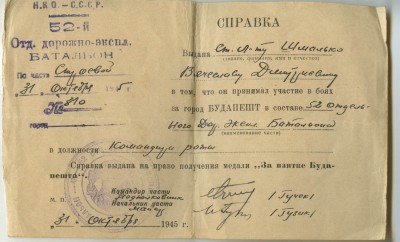 Н.К.О. - С.С.С.Р.
52-й
Отд. дорожно-экспл.
БАТАЛЬОН
По части Строевой
"31" Октября 1945 г.
№ 810
город
СПРАВКА
Выдана Ст. л-ту Шмалько
(звание, фамилия, имя и отчество)
Вячеславу Дмитриевичу
в том, что он принимал участие в боях
за город БУДАПЕШТ в составе 52 отдель-
ного Дор. Экспл. Батальона
(наименование части)
в должности Командира роты
Справка выдана на право получения медали „За взятие Буда-
пешта".
Командир части
Подполковник
М. П.
Начальник части
Майор
"31" Октября 1945 г.